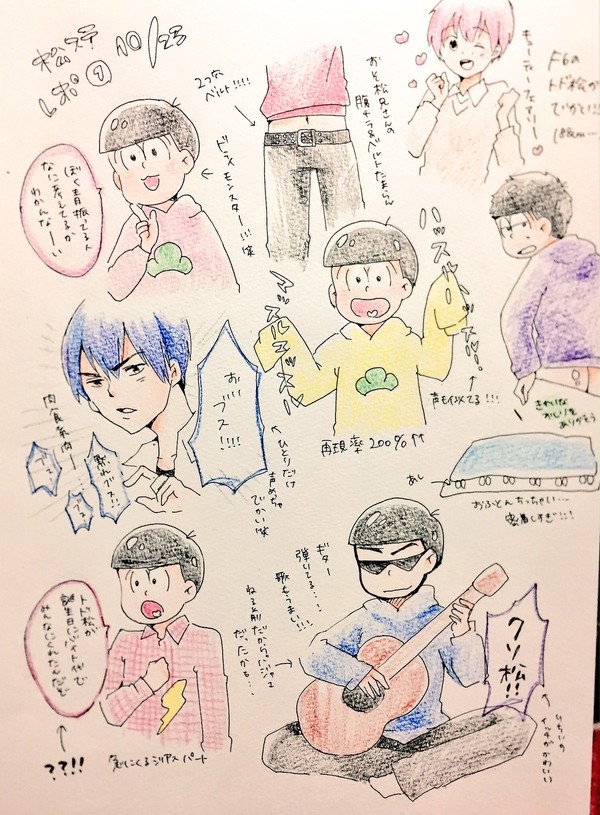 松ステ
レポ①
10/23
2つな
ベルト!!!!
おそ松兄さんの
腹チラ&ベルトたまらん
キューティーフェアリー
F6の
トド松が
でかい!!!
ぼく青振ってる人
なに考えてるか
わかんなーい
ドライモンスター!!!笑
ハッスルハッスル!
マッスルマッスル
声も似てる!!!
再現率200%↑↑
きれいな
おしりを
ありがとう
おいブス!!!!
肉食系肉
ブス
ブス
ひとりだけ
声めちゃ
でかい笑
あし
おふとんちっちゃい…
密着しすぎ…!
ギター
弾いてる…!
歌もうまい!!!
クソ松!!
トド松が
誕生日にバイト代で
みんなにくれたんだぞ
??!!
急にくるシリアスパート